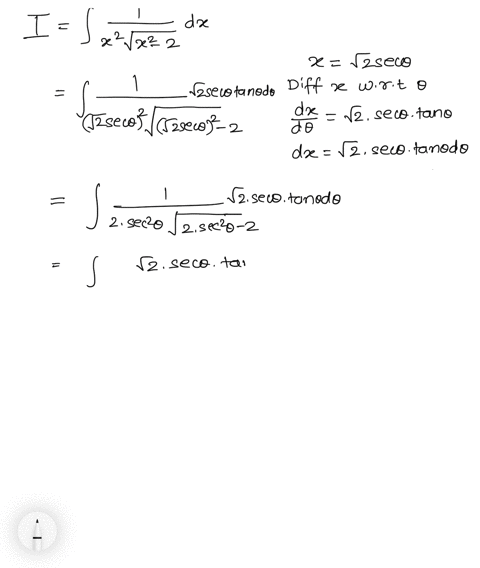 I = ∫ 1/(x²√(x²-2)) dx
x = √2 secθ
= ∫ 1/((√2 secθ)²√((√2 secθ)²-2)) √2 secθ tanθdθ
Diff x w.r.t θ
dx/dθ = √2. secθ. tanθ
dx = √2. secθ. tanθdθ
= ∫ 1/(2. sec²θ √(2. sec²θ-2)) √2. secθ. tanθdθ
= ∫ √2. secθ. tan